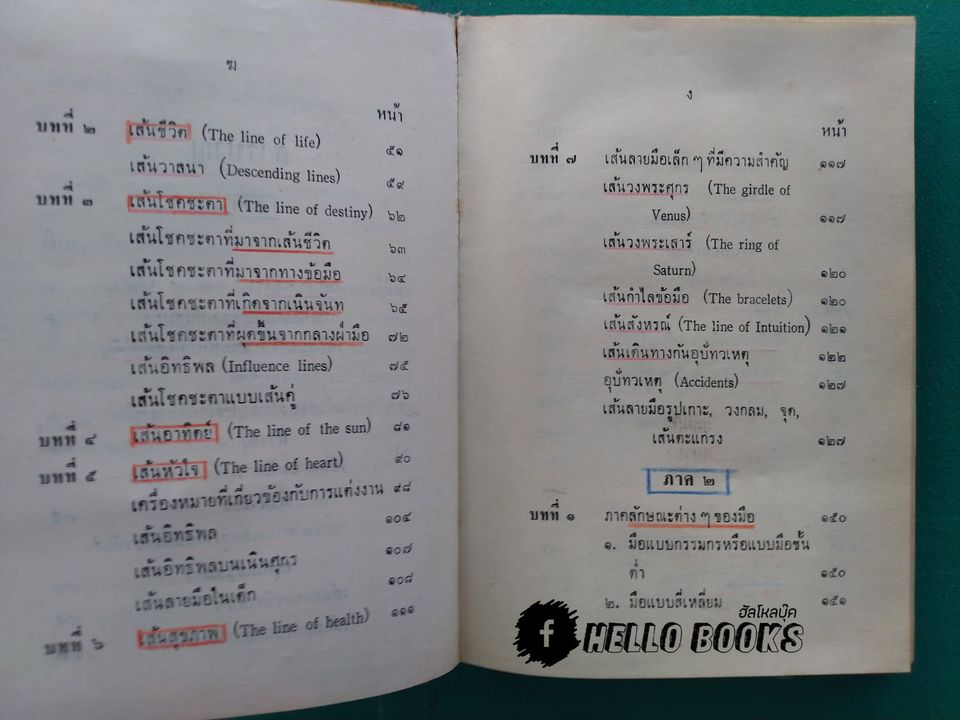 ฆ
หน้า
บทที่ ๒ เส้นชีวิต (The line of life) ๕๑
เส้นวาสนา (Descending lines) ๕๙
บทที่ ๓ เส้นโชคชะตา (The line of destiny) ๖๒
เส้นโชคชะตาที่มาจากเส้นชีวิต ๖๓
เส้นโชคชะตาที่มาจากทางข้อมือ ๖๔
เส้นโชคชะตาที่เกิดจากเนินจันท ๖๕
เส้นโชคชะตาที่ผุดขึ้นจากกลางฝ่ามือ ๗๒
เส้นอิทธิพล (Influence lines) ๗๕
เส้นโชคชะตาแบบเส้นคู่ ๗๖
บทที่ ๔ เส้นอาทิตย์ (The line of the sun) ๘๑
บทที่ ๕ เส้นหัวใจ (The line of heart) ๙๐
เครื่องหมายที่เกี่ยวข้องกับการแต่งงาน ๙๘
เส้นอิทธิพล ๑๐๔
เส้นอิทธิพลบนเนินศุกร ๑๐๗
เส้นลายมือในเด็ก ๑๐๘
บทที่ ๖ เส้นสุขภาพ (The line of health) ๑๑๑
ง
หน้า
บทที่ ๗ เส้นลายมือเล็ก ๆ ที่มีความสำคัญ ๑๑๗
เส้นวงพระศุกร (The girdle of
Venus) ๑๑๗
เส้นวงพระเสาร์ (The ring of
Saturn) ๑๒๐
เส้นกำไลข้อมือ (The bracelets) ๑๒๐
เส้นสังหรณ์ (The line of Intuition) ๑๒๑
เส้นเดินทางกันอุบัทวเหตุ ๑๒๒
อุบัทวเหตุ (Accidents) ๑๒๗
เส้นลายมือรูปเกาะ, วงกลม, จุด,
เส้นตะแกรง ๑๒๗
ภาค ๒
บทที่ ๑ ภาคลักษณะต่าง ๆ ของมือ ๑๕๐
๑. มือแบบกรรมกรหรือแบบมือชั้น
ต่ำ ๑๕๐
๒. มือแบบสี่เหลี่ยม ๑๕๑
ฮัลโหลบุ๊ค
f HELLO BOOKS